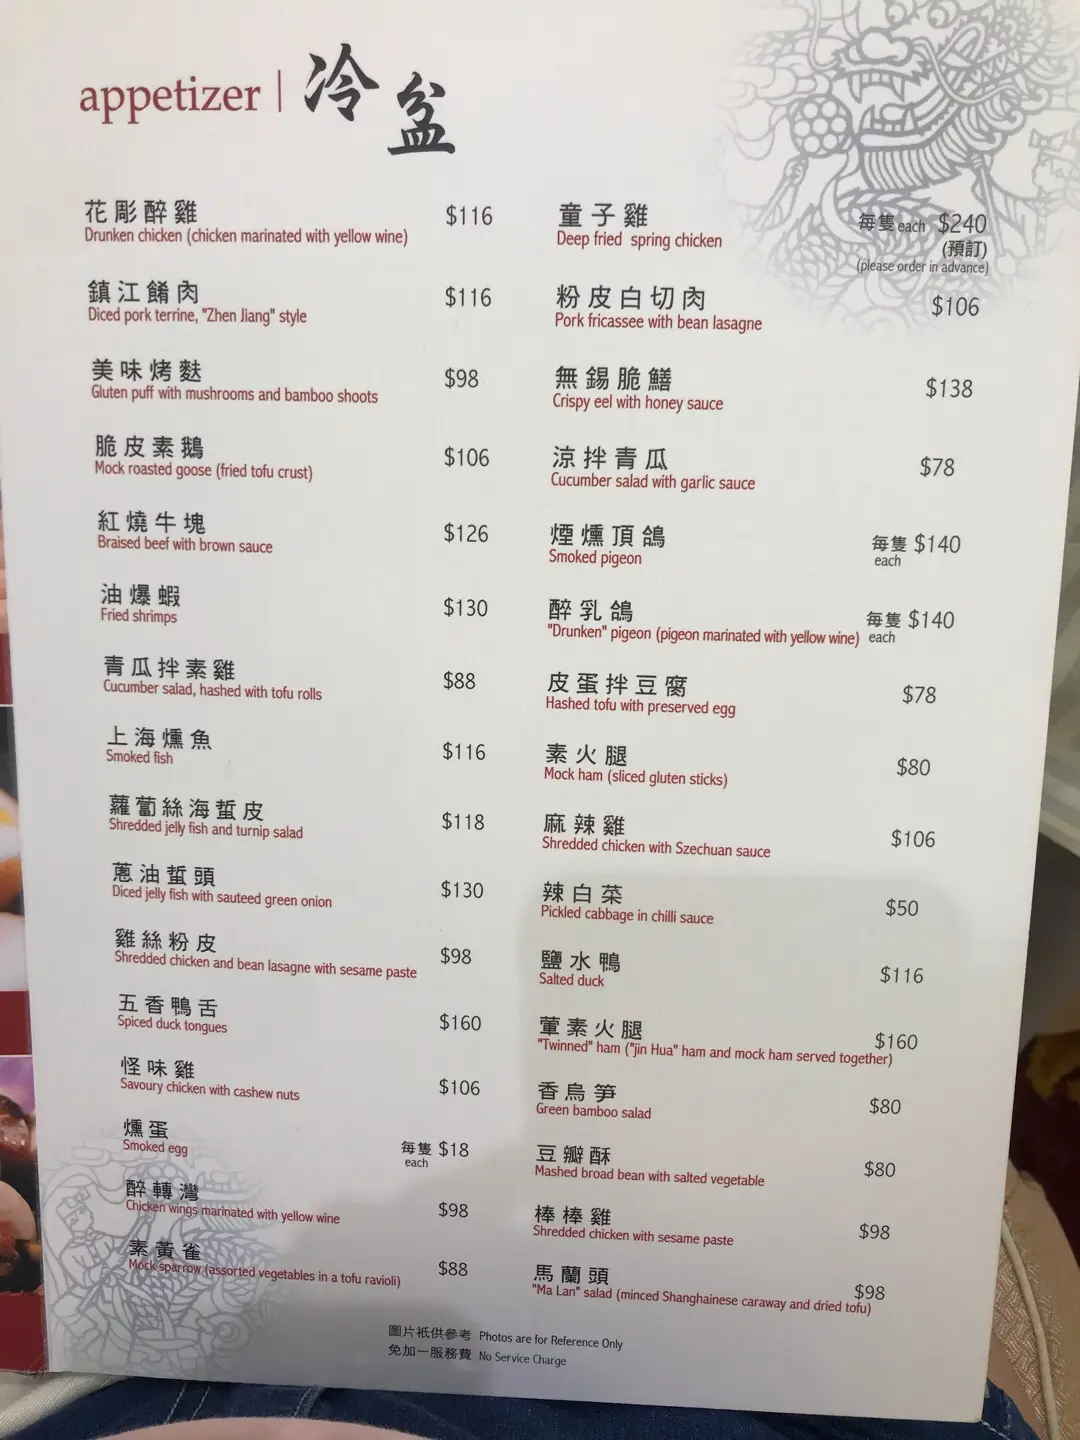 appetizer | 冷盆
花彫醉雞 $116
Drunken chicken (chicken marinated with yellow wine)
鎮江餚肉 $116
Diced pork terrine, "Zhen Jiang" style
美味烤麩 $98
Gluten puff with mushrooms and bamboo shoots
脆皮素鵝 $106
Mock roasted goose (fried tofu crust)
紅燒牛塊 $126
Braised beef with brown sauce
油爆蝦 $130
Fried shrimps
青瓜拌素雞 $88
Cucumber salad, hashed with tofu rolls
上海燻魚 $116
Smoked fish
蘿蔔絲海蜇皮 $118
Shredded jelly fish and turnip salad
蔥油蜇頭 $130
Diced jelly fish with sauteed green onion
雞絲粉皮 $98
Shredded chicken and bean lasagne with sesame paste
五香鴨舌 $160
Spiced duck tongues
怪味雞 $106
Savoury chicken with cashew nuts
燻蛋 每隻 $18
Smoked egg each
醉轉灣 $98
Chicken wings marinated with yellow wine
素黃雀 $88
Mock sparrow (assorted vegetables in a tofu ravioli)
童子雞 每隻 each $240
Deep fried spring chicken (預訂)
(please order in advance)
粉皮白切肉 $106
Pork fricassee with bean lasagne
無錫脆鱔 $138
Crispy eel with honey sauce
涼拌青瓜 $78
Cucumber salad with garlic sauce
煙燻頂鴿 每隻 $140
Smoked pigeon each
醉乳鴿 每隻 $140
"Drunken" pigeon (pigeon marinated with yellow wine) each
皮蛋拌豆腐 $78
Hashed tofu with preserved egg
素火腿 $80
Mock ham (sliced gluten sticks)
麻辣雞 $106
Shredded chicken with Szechuan sauce
辣白菜 $50
Pickled cabbage in chilli sauce
鹽水鴨 $116
Salted duck
葷素火腿 $160
"Twinned" ham ("jin Hua" ham and mock ham served together)
香烏笋 $80
Green bamboo salad
豆瓣酥 $80
Mashed broad bean with salted vegetable
棒棒雞 $98
Shredded chicken with sesame paste
馬蘭頭 $98
"Ma Lan" salad (minced Shanghainese caraway and dried tofu)
圖片衹供參考 Photos are for Reference Only
免加一服務費 No Service Charge